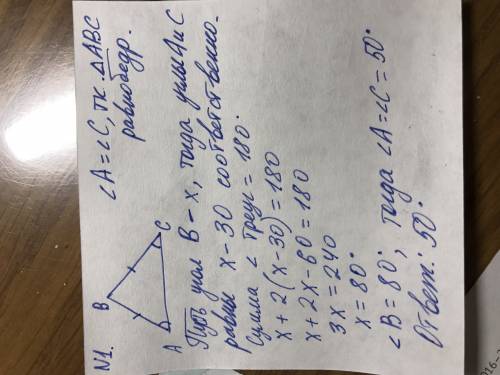 N1.
B
A
C
∠A=∠C, т.к. △ABC
равнобедр.
Пусть угол B – x, тогда углы A и C
равны x – 30 соответственно.
Сумма ∠ треуг = 180°
x + 2(x-30) = 180
x + 2x - 60 = 180
3x = 240
x = 80°
∠B = 80°, тогда ∠A = ∠C = 50°
Ответ: 50°